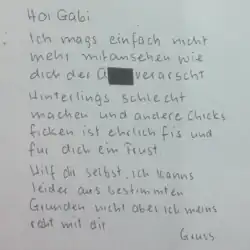 Hoi Gabi
Ich mags einfach nicht
mehr mitansehen wie
dich der A verarscht
Hinterlings schlecht
machen und andere Chicks
ficken ist ehrlich fis und
für dich ein Frust
Hilf dir selbst. Ich kanns
leider aus bestimmten
Grunden nicht aber ich meins
reht mit dir
Gruss